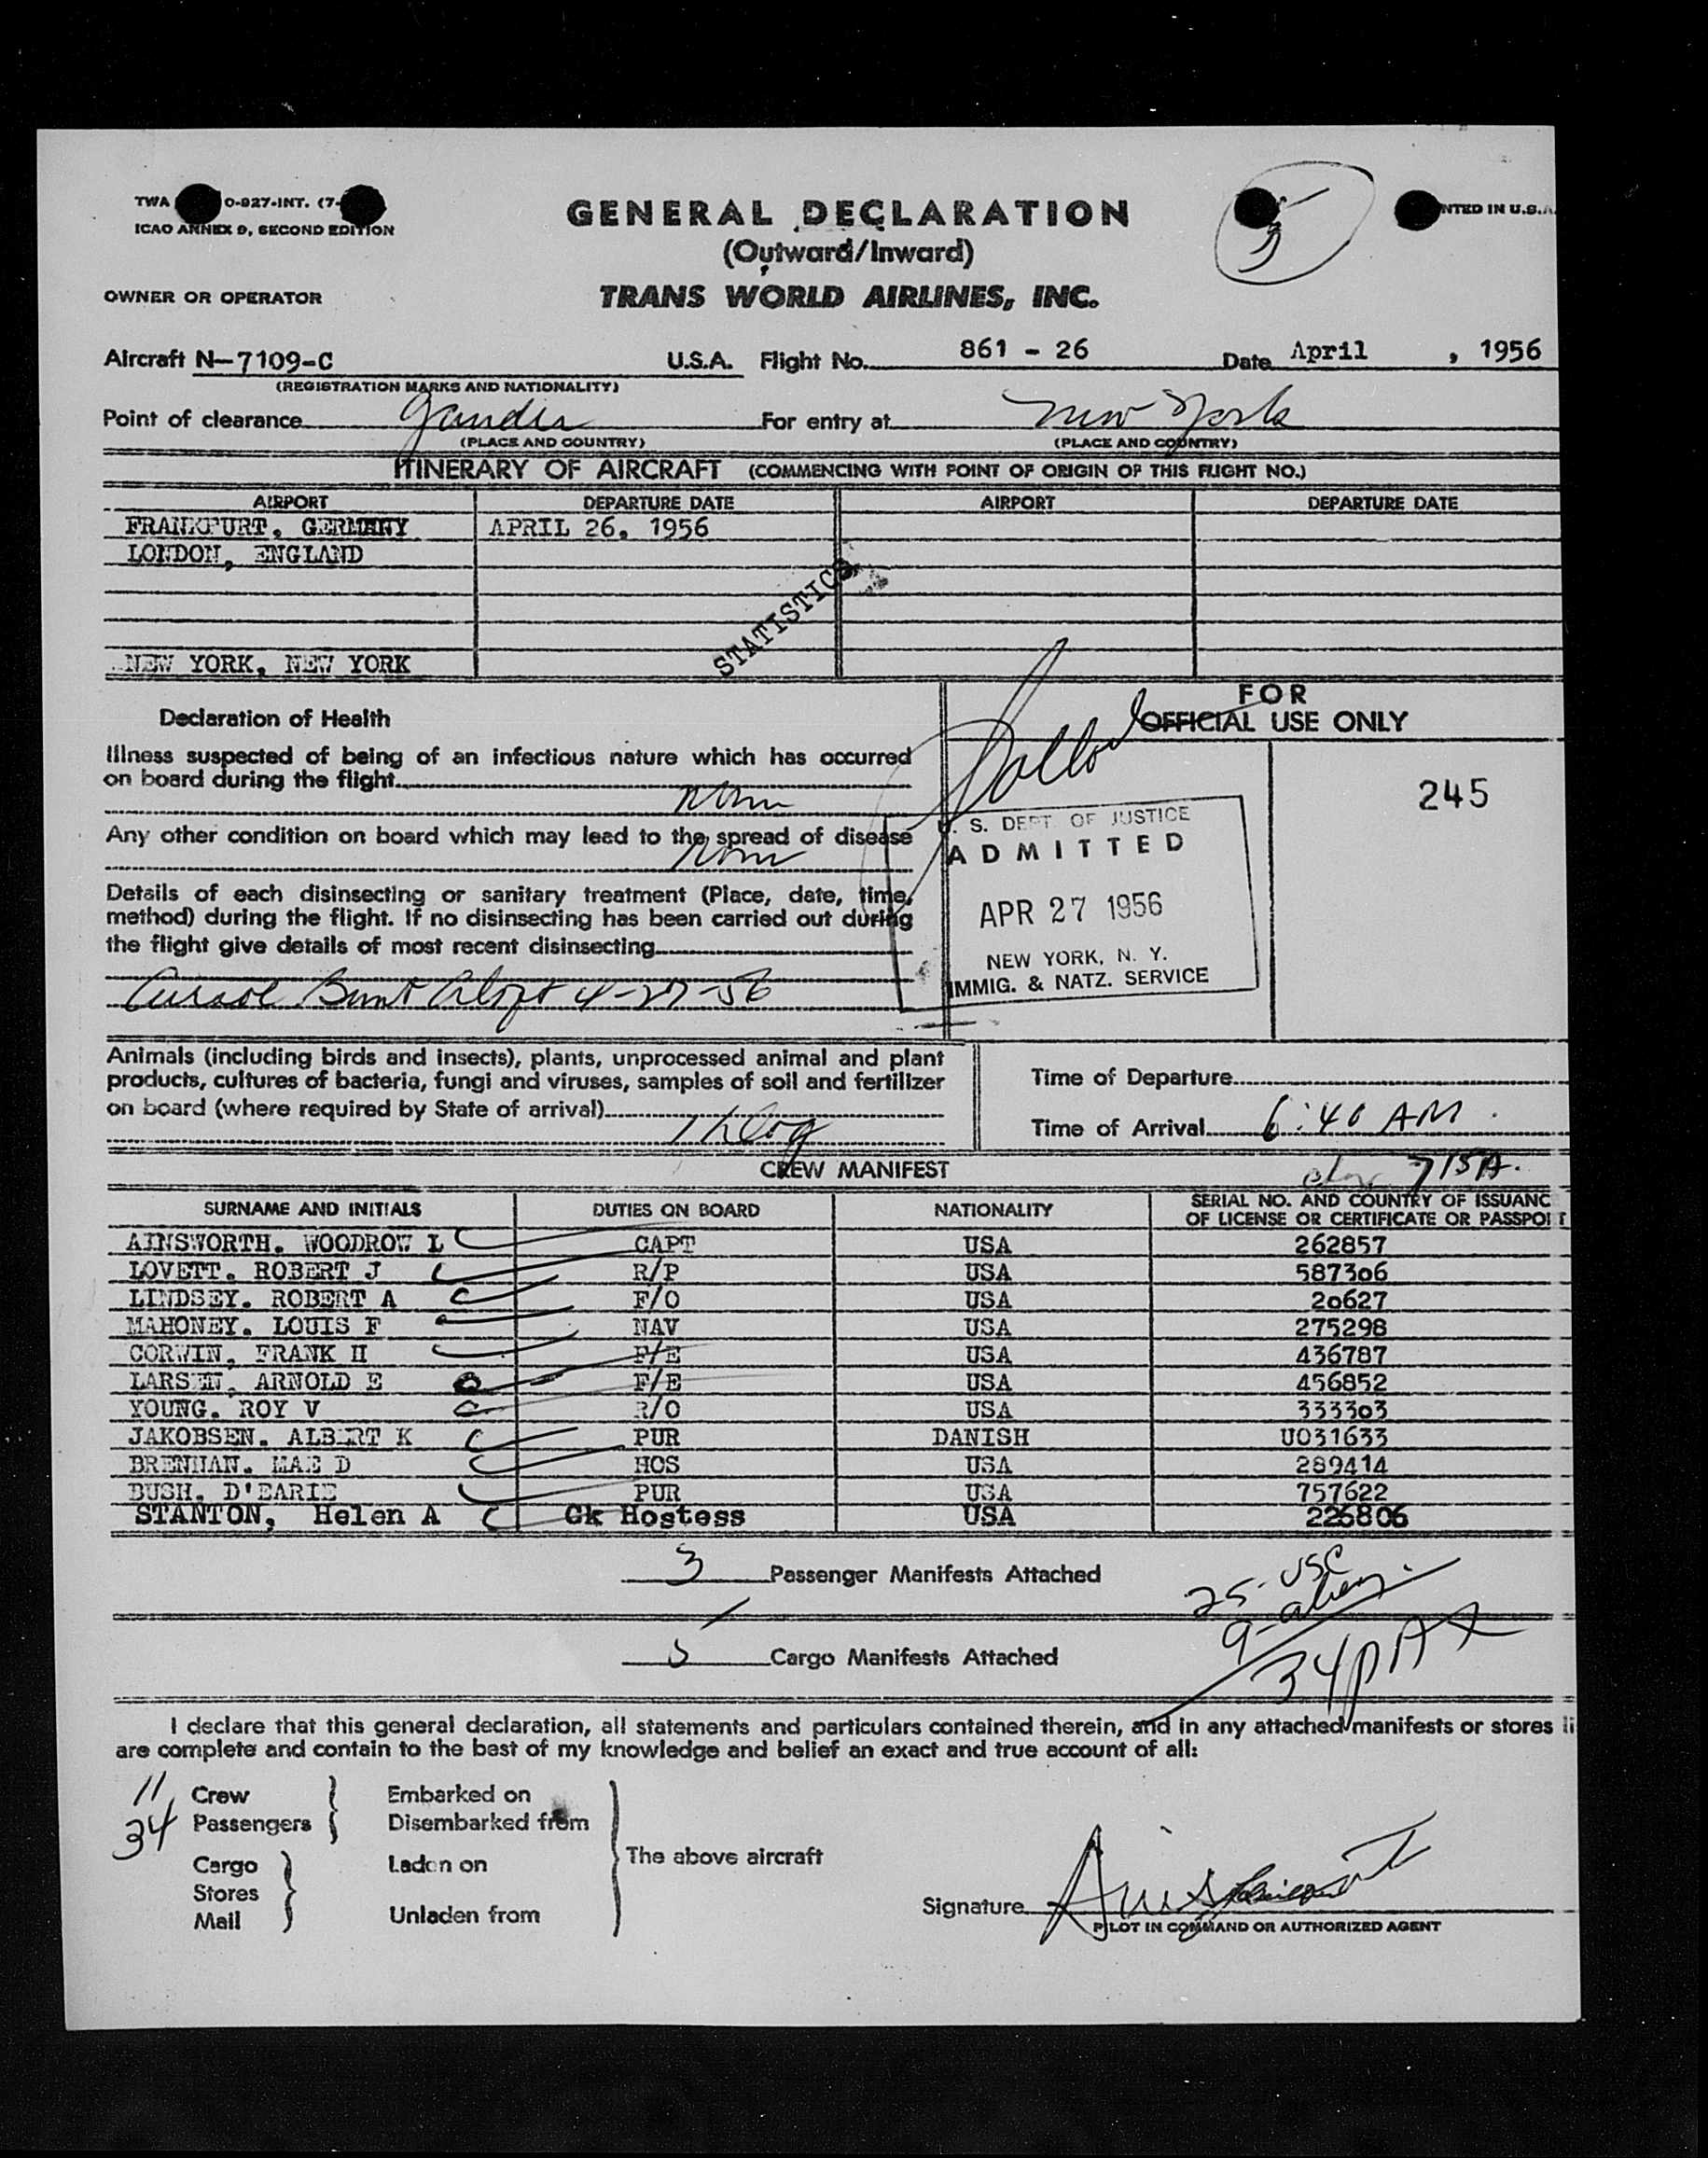 TWA O-927-INT. (7-
ICAO ANNEX 9, SECOND EDITION
NTED IN U.S.A.
GENERAL DECLARATION
(Outward/Inward)
5
OWNER OR OPERATOR
TRANS WORLD AIRLINES, INC.
Aircraft N-7109-C U.S.A. Flight No. 861 - 26 Date April , 1956
(REGISTRATION MARKS AND NATIONALITY)
Point of clearance Gander For entry at New York
(PLACE AND COUNTRY) (PLACE AND COUNTRY)
ITINERARY OF AIRCRAFT (COMMENCING WITH POINT OF ORIGIN OF THIS FLIGHT NO.)
AIRPORT DEPARTURE DATE AIRPORT DEPARTURE DATE
FRANKFURT, GERMANY APRIL 26, 1956
LONDON, ENGLAND
STATISTICS
NEW YORK, NEW YORK
Declaration of Health
FOR
OFFICIAL USE ONLY
Illness suspected of being of an infectious nature which has occurred
on board during the flight
None
245
Any other condition on board which may lead to the spread of disease
None
U. S. DEPT. OF JUSTICE
ADMITTED
APR 27 1956
NEW YORK, N. Y.
IMMIG. & NATZ. SERVICE
Details of each disinsecting or sanitary treatment (Place, date, time,
method) during the flight. If no disinsecting has been carried out during
the flight give details of most recent disinsecting
4-27-56
Animals (including birds and insects), plants, unprocessed animal and plant
products, cultures of bacteria, fungi and viruses, samples of soil and fertilizer
on board (where required by State of arrival)
1 Dog
Time of Departure
Time of Arrival 6:40 AM
715A.
CREW MANIFEST
SURNAME AND INITIALS DUTIES ON BOARD NATIONALITY SERIAL NO. AND COUNTRY OF ISSUANC
OF LICENSE OR CERTIFICATE OR PASSPORT
AINSWORTH. WOODROW L CAPT USA 262857
LOVETT. ROBERT J R/P USA 587306
LINDSEY. ROBERT A F/O USA 20627
MAHONEY. LOUIS F NAV USA 275298
CORWIN, FRANK H F/E USA 436787
LARSEN, ARNOLD E F/E USA 456852
YOUNG. ROY V R/O USA 333303
JAKOBSEN. ALBERT K PUR DANISH U031633
BRENNAN. MAE D HOS USA 289414
BUSH. D'EARIE PUR USA 757622
STANTON, Helen A Gk Hostess USA 226806
3 Passenger Manifests Attached
25-USC
9-aliens
34 PAX
5 Cargo Manifests Attached
I declare that this general declaration, all statements and particulars contained therein, and in any attached manifests or stores li
are complete and contain to the best of my knowledge and belief an exact and true account of all:
11 Crew Embarked on
34 Passengers Disembarked from
The above aircraft
Cargo Laden on
Stores
Mail Unladen from
Signature
PILOT IN COMMAND OR AUTHORIZED AGENT